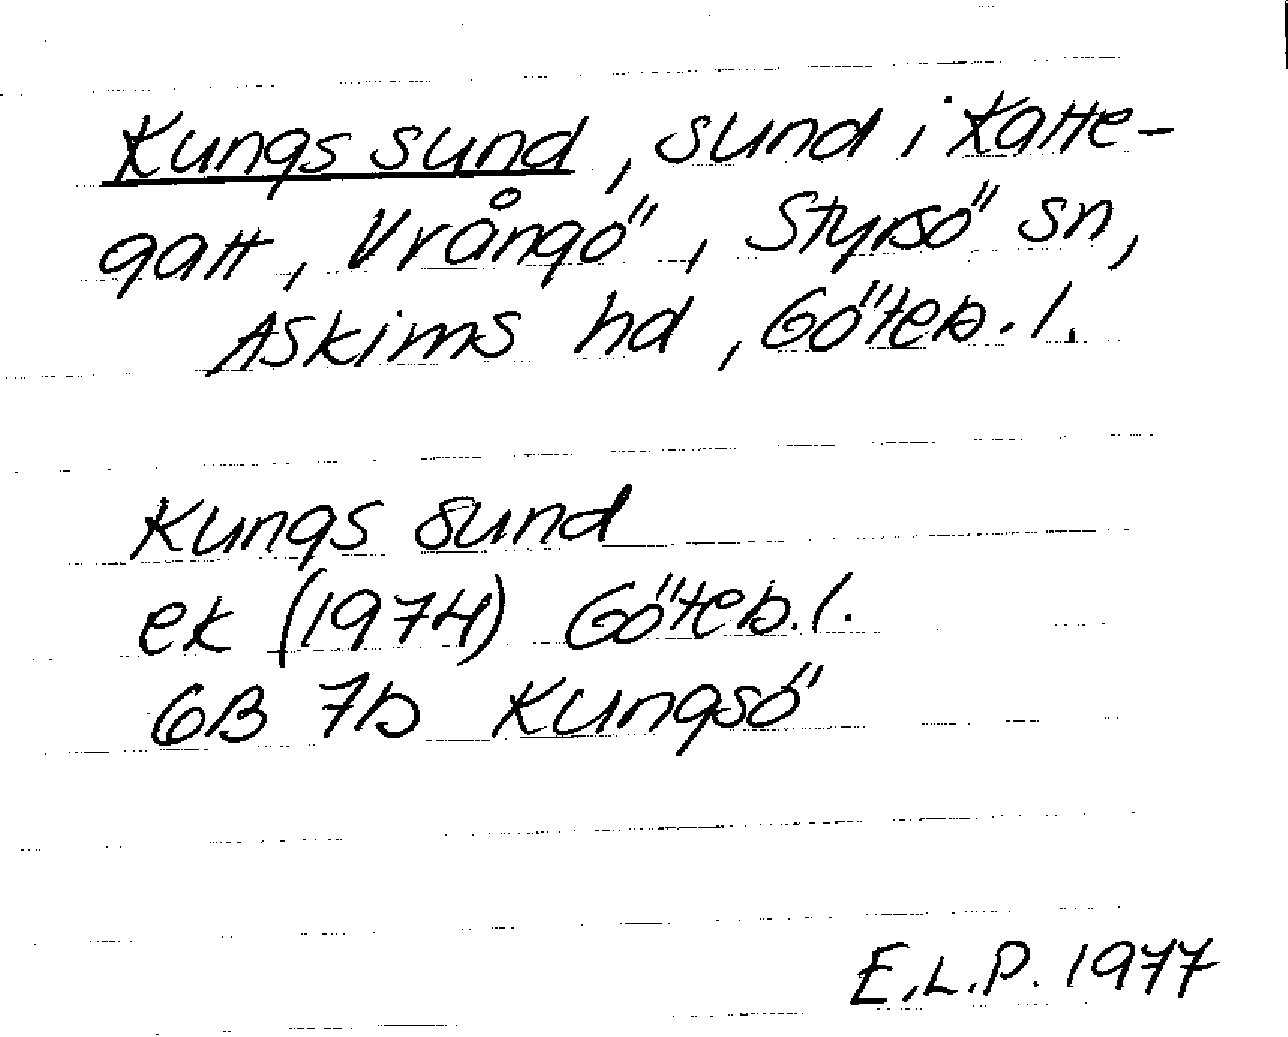 Kungs sund, sund i Katte-
gatt, Vrångö, Styrsö sn,
Askims hd, Göteb. l.
Kungs sund
ek (1974) Göteb. l.
6B 7b Kungsö
E.L.P. 1977